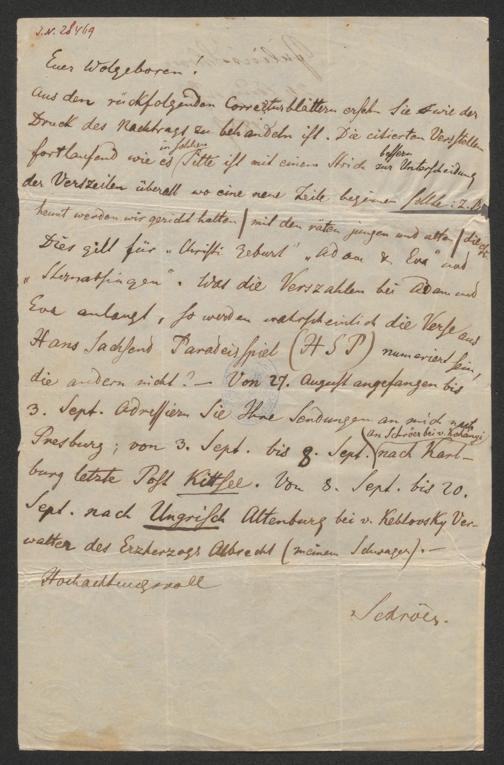 J.N. 28469
Euer Wolgeboren!
Aus den rückfolgenden Correcturblättern ersehn Sie wie der
Druck des Nachtrags zu behandeln ist. Die citierten Versstellen
fortlaufend wie es in solchen Sitte ist mit einem Strich zur bessern Unterscheidung
der Verszeilen überall wo eine neue Zeile beginnen sollte: z.B.
heunt werden wir gericht halten / mit den räten jungen und alten /
Dies gilt für „Christi Geburt" „Adam & Eva" und
„Sternatsingen". Was die Verszahlen bei Adam und
Eva anlangt, so werden wahrscheinlich die Verse aus
Hans Sachsens Paradeisspiel (HSP) numeriert sein,
die andern nicht? – Von 27. August angefangen bis
3. Sept. adressiern Sie Ihre Sendungen an mich nach
Presburg; von 3. Sept. bis 8. Sept. (an Schröer bei v. nach Karl-
burg letzte Post Kittsee. Von 8. Sept. bis 20.
Sept. nach Ungrisch Altenburg bei v. Keblovsky Ver-
walter des Erzherzogs Albrecht (meinem Schwager). –
Hochachtungsvoll
Schröer.